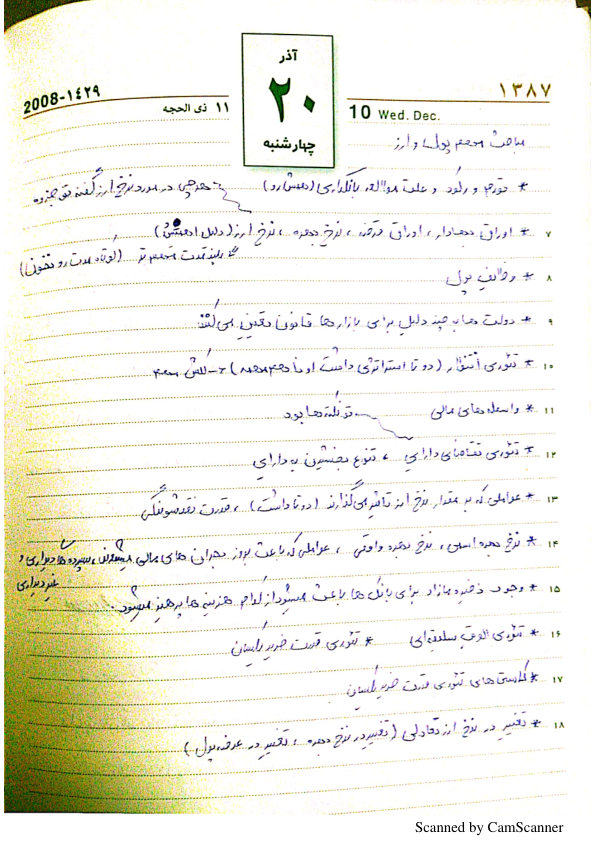 2008-١٤٢٩
١١ ذی الحجه
آذر
٢٠
چهارشنبه
10 Wed. Dec.
١٣٨٧
مباحث مهم پول و ارز
* تورم و رکود و علت بانکداری
هرچی در مورد نرخ ارز گفته
٧ * اوراق بهادار، اوراق قرضه، نرخ بهره، نرخ ارز (دلیل اهمیتش)
بلندمدت مهم تر (کوتاه مدت رو نخون)
٨ * وظایف پول
٩ * دولت بنا به چند دلیل برای بازارها قانون تعیین می کند
١٠ * تئوری انتظار (دو تا استراتژی داشت اونا هم مهمه)
١١ * واسطه های مالی
تو نکته ها بود
١٢ * تئوری تقاضای دارایی، تنوع بخشیدن به دارایی
١٣ * عواملی که بر مقدار نرخ ارز تاثیر می گذارند (دو تا داشت)، قدرت نقدشوندگی
١٤ * نرخ بهره اسمی، نرخ بهره واقعی، عواملی که باعث بروز بحران های مالی میشوند، سپرده ها دیداری و
غیر دیداری
١٥ * وجود ذخیره مازاد برای بانک ها باعث میشود از کدام هزینه ها پرهیز میشود؟
١٦ * تئوری الویت سلیقه ای * تئوری قدرت خرید یکسان
١٧ * کاستی های تئوری قدرت خرید یکسان
١٨ * تغییر در نرخ ارز تعادلی (تغییر در نرخ بهره، تغییر در عرضه پول)
Scanned by CamScanner